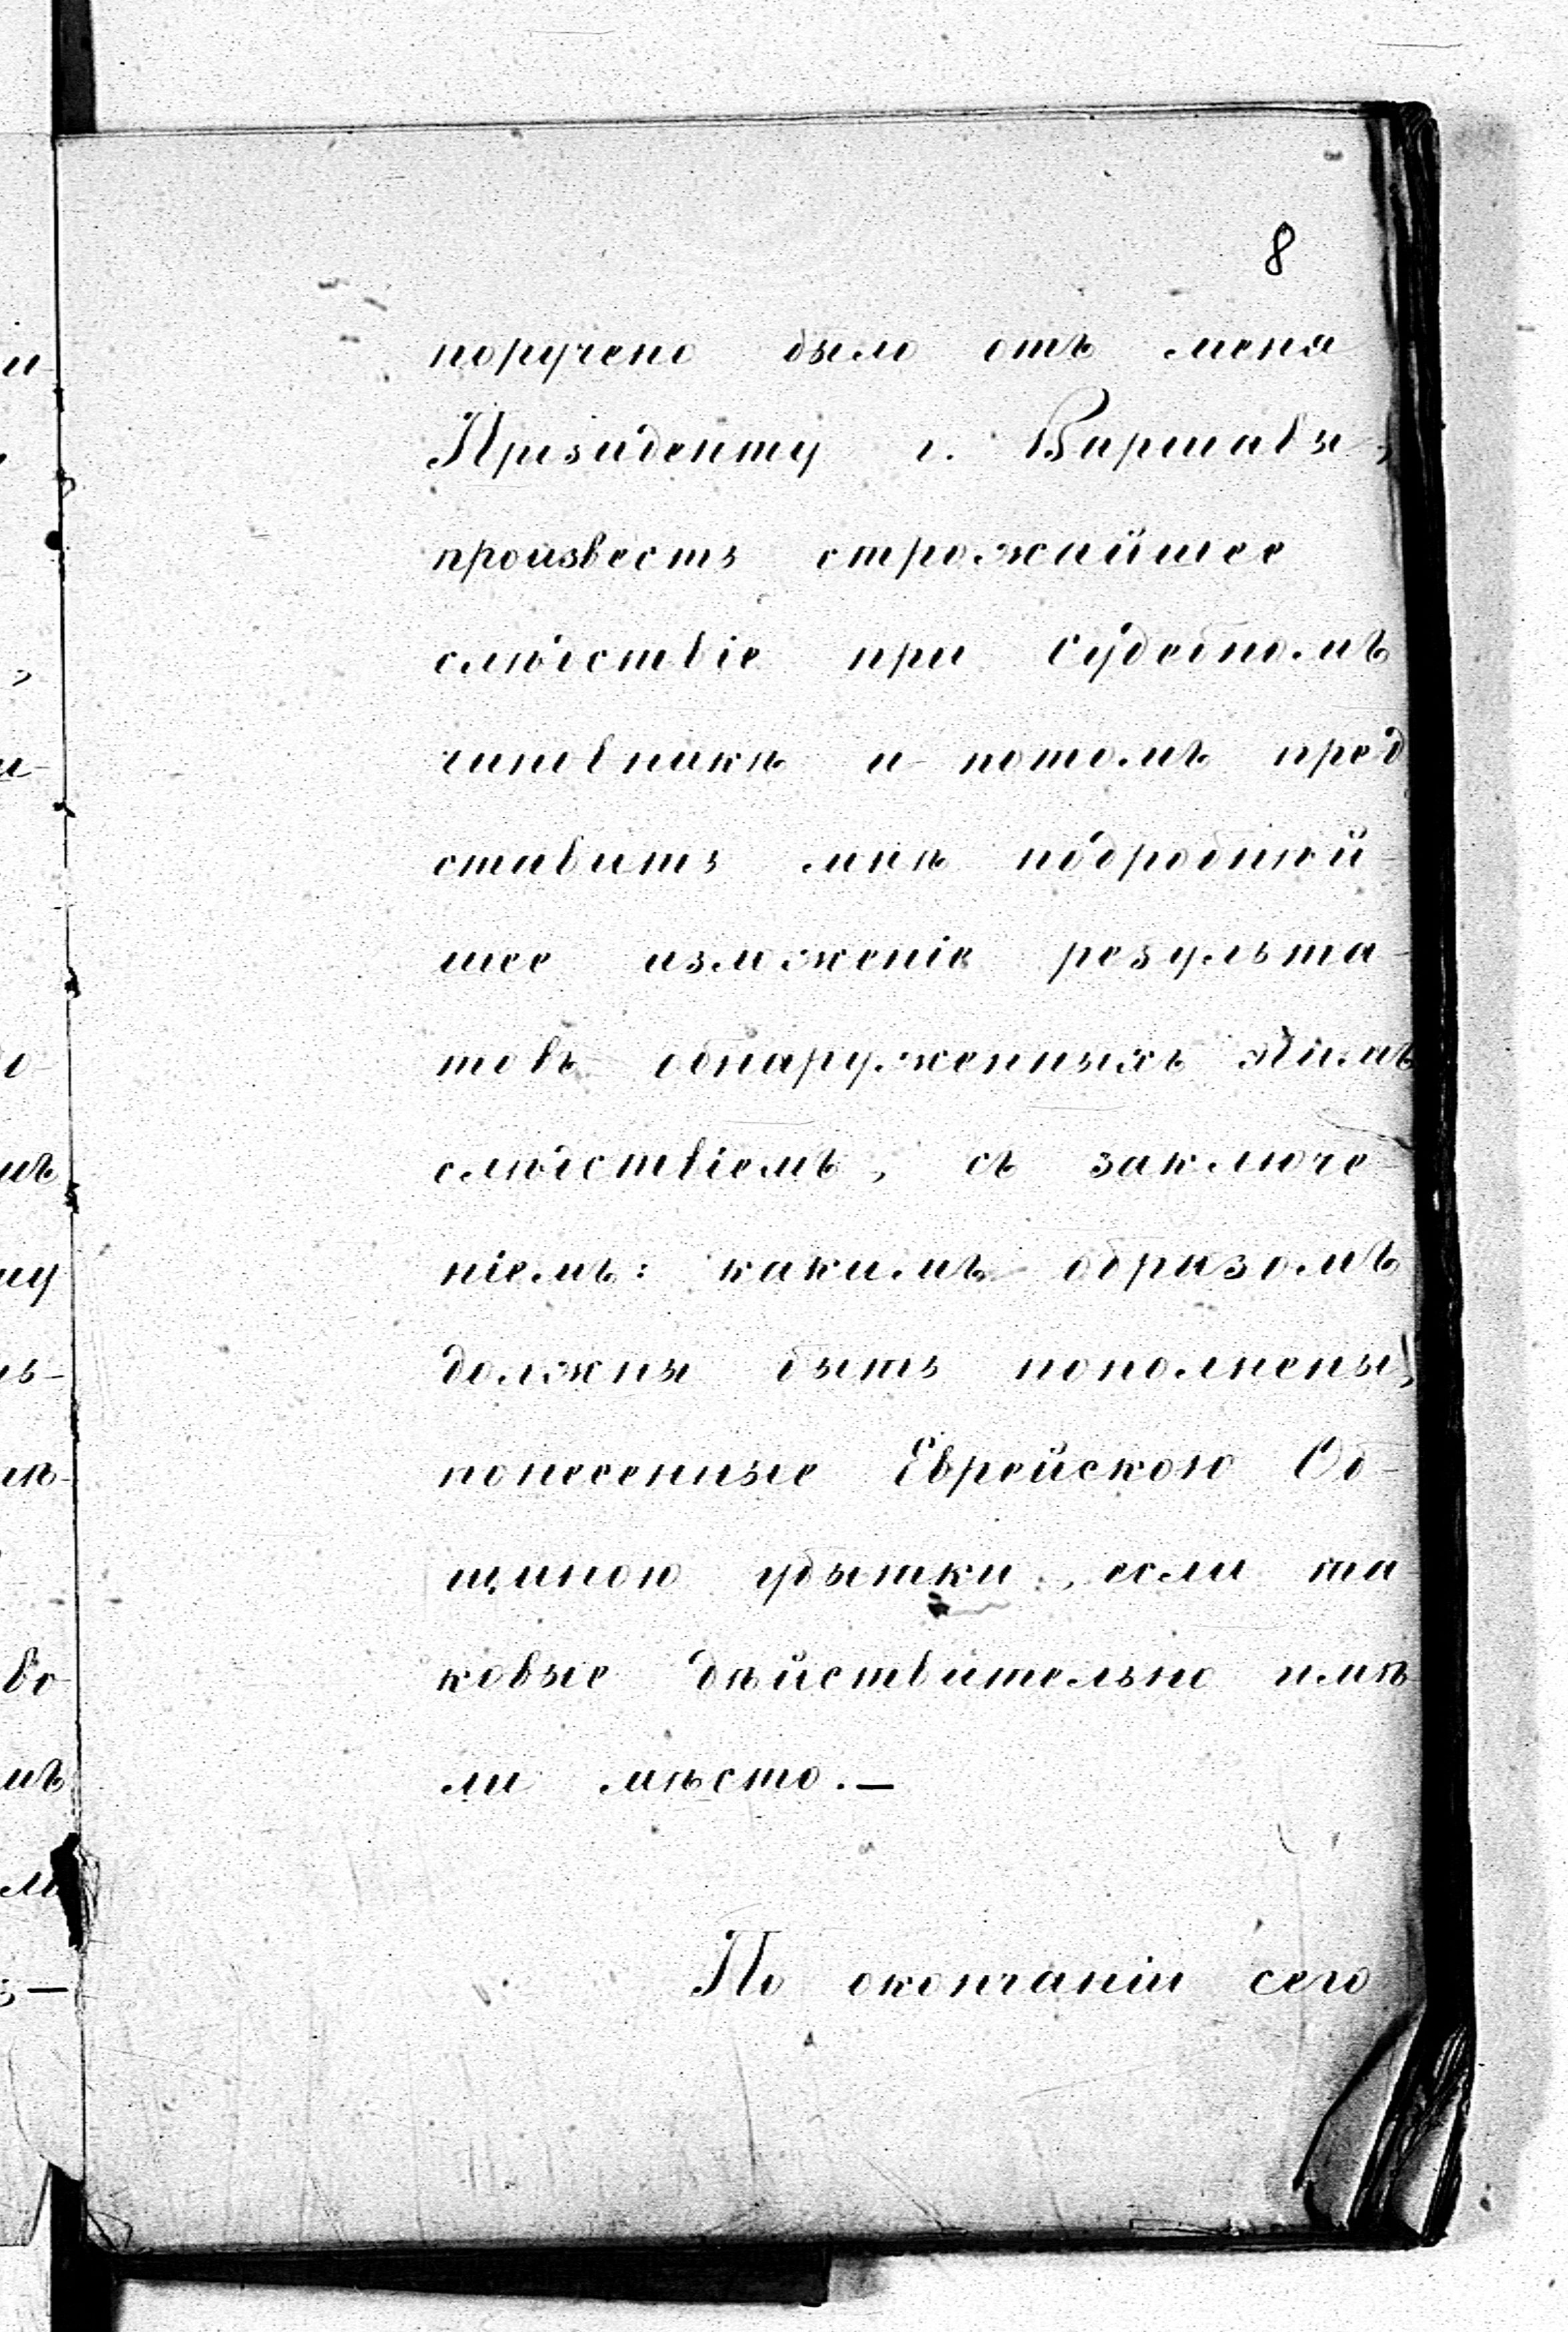 8
поручено было отъ меня
Президенту г. Варшавы,
произвесть строжайшее
слѣдствіе при Судебномъ
чиновникѣ и потомъ пред
ставить мнѣ подробнѣй-
шее изложеніе результа-
товъ обнаруженныхъ этимъ
слѣдствіемъ, съ заключе-
ніемъ: какимъ образомъ
должны быть пополнены,
понесенные Еврейскою Об-
щиною убытки, если та
ковые дѣйствительно имѣ
ли мѣсто.—
По окончаніи сего